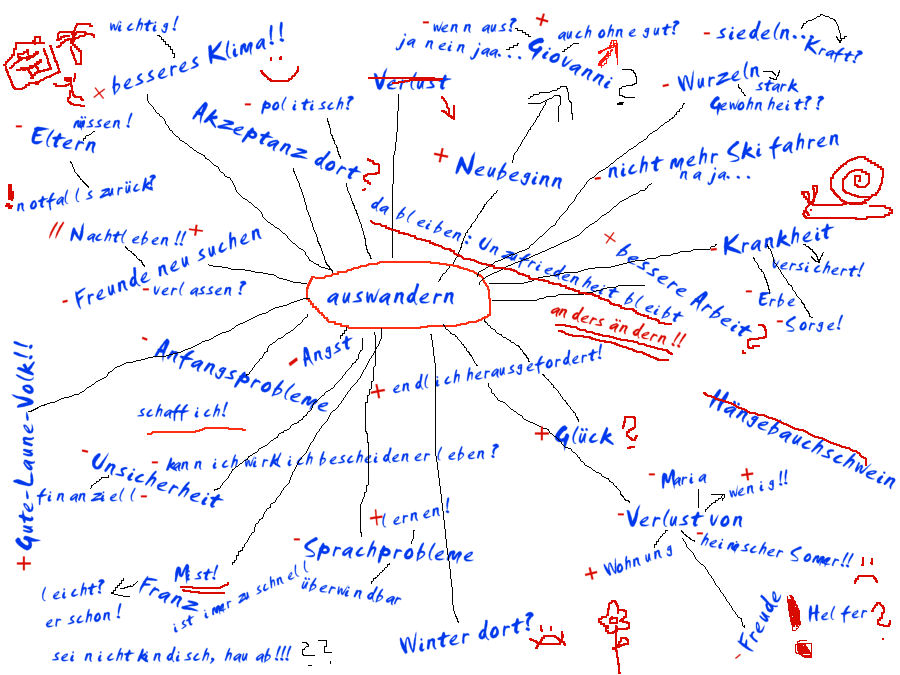 wichtig!
+ besseres Klima!!
- wenn aus? +
ja nein jaa...
Giovanni ?
auch ohne gut?
- siedeln..
Kraft?
Verlust
- politisch?
Akzeptanz dort?
- Wurzeln
stark
Gewohnheit??
- müssen!
Eltern
! notfalls zurück?
+ Neubeginn
- nicht mehr Ski fahren
naja...
!! Nachtleben!! +
- Freunde neu suchen
- verlassen?
da bleiben: Unzufriedenheit bleibt
anders ändern!!
+ bessere Arbeit?
- Krankheit
versichert!
- Erbe
- Sorge!
auswandern
- Anfangsprobleme
- Angst
+ endlich herausgefordert!
schaff ich!
+ Gute-Laune-Volk!!
+ Glück ?
Hängebauchschwein
- Unsicherheit
finanziell -
- kann ich wirklich bescheidener leben?
- Maria
+ wenig!!
- Verlust von
- heimischer Sommer!!
+ Wohnung
- Freude
! Helfer?
+ lernen!
- Sprachprobleme
überwindbar
Mist!
Franz
ist immer zu schnell!
leicht?
er schon!
sei nicht kindisch, hau ab!!! ??
Winter dort?